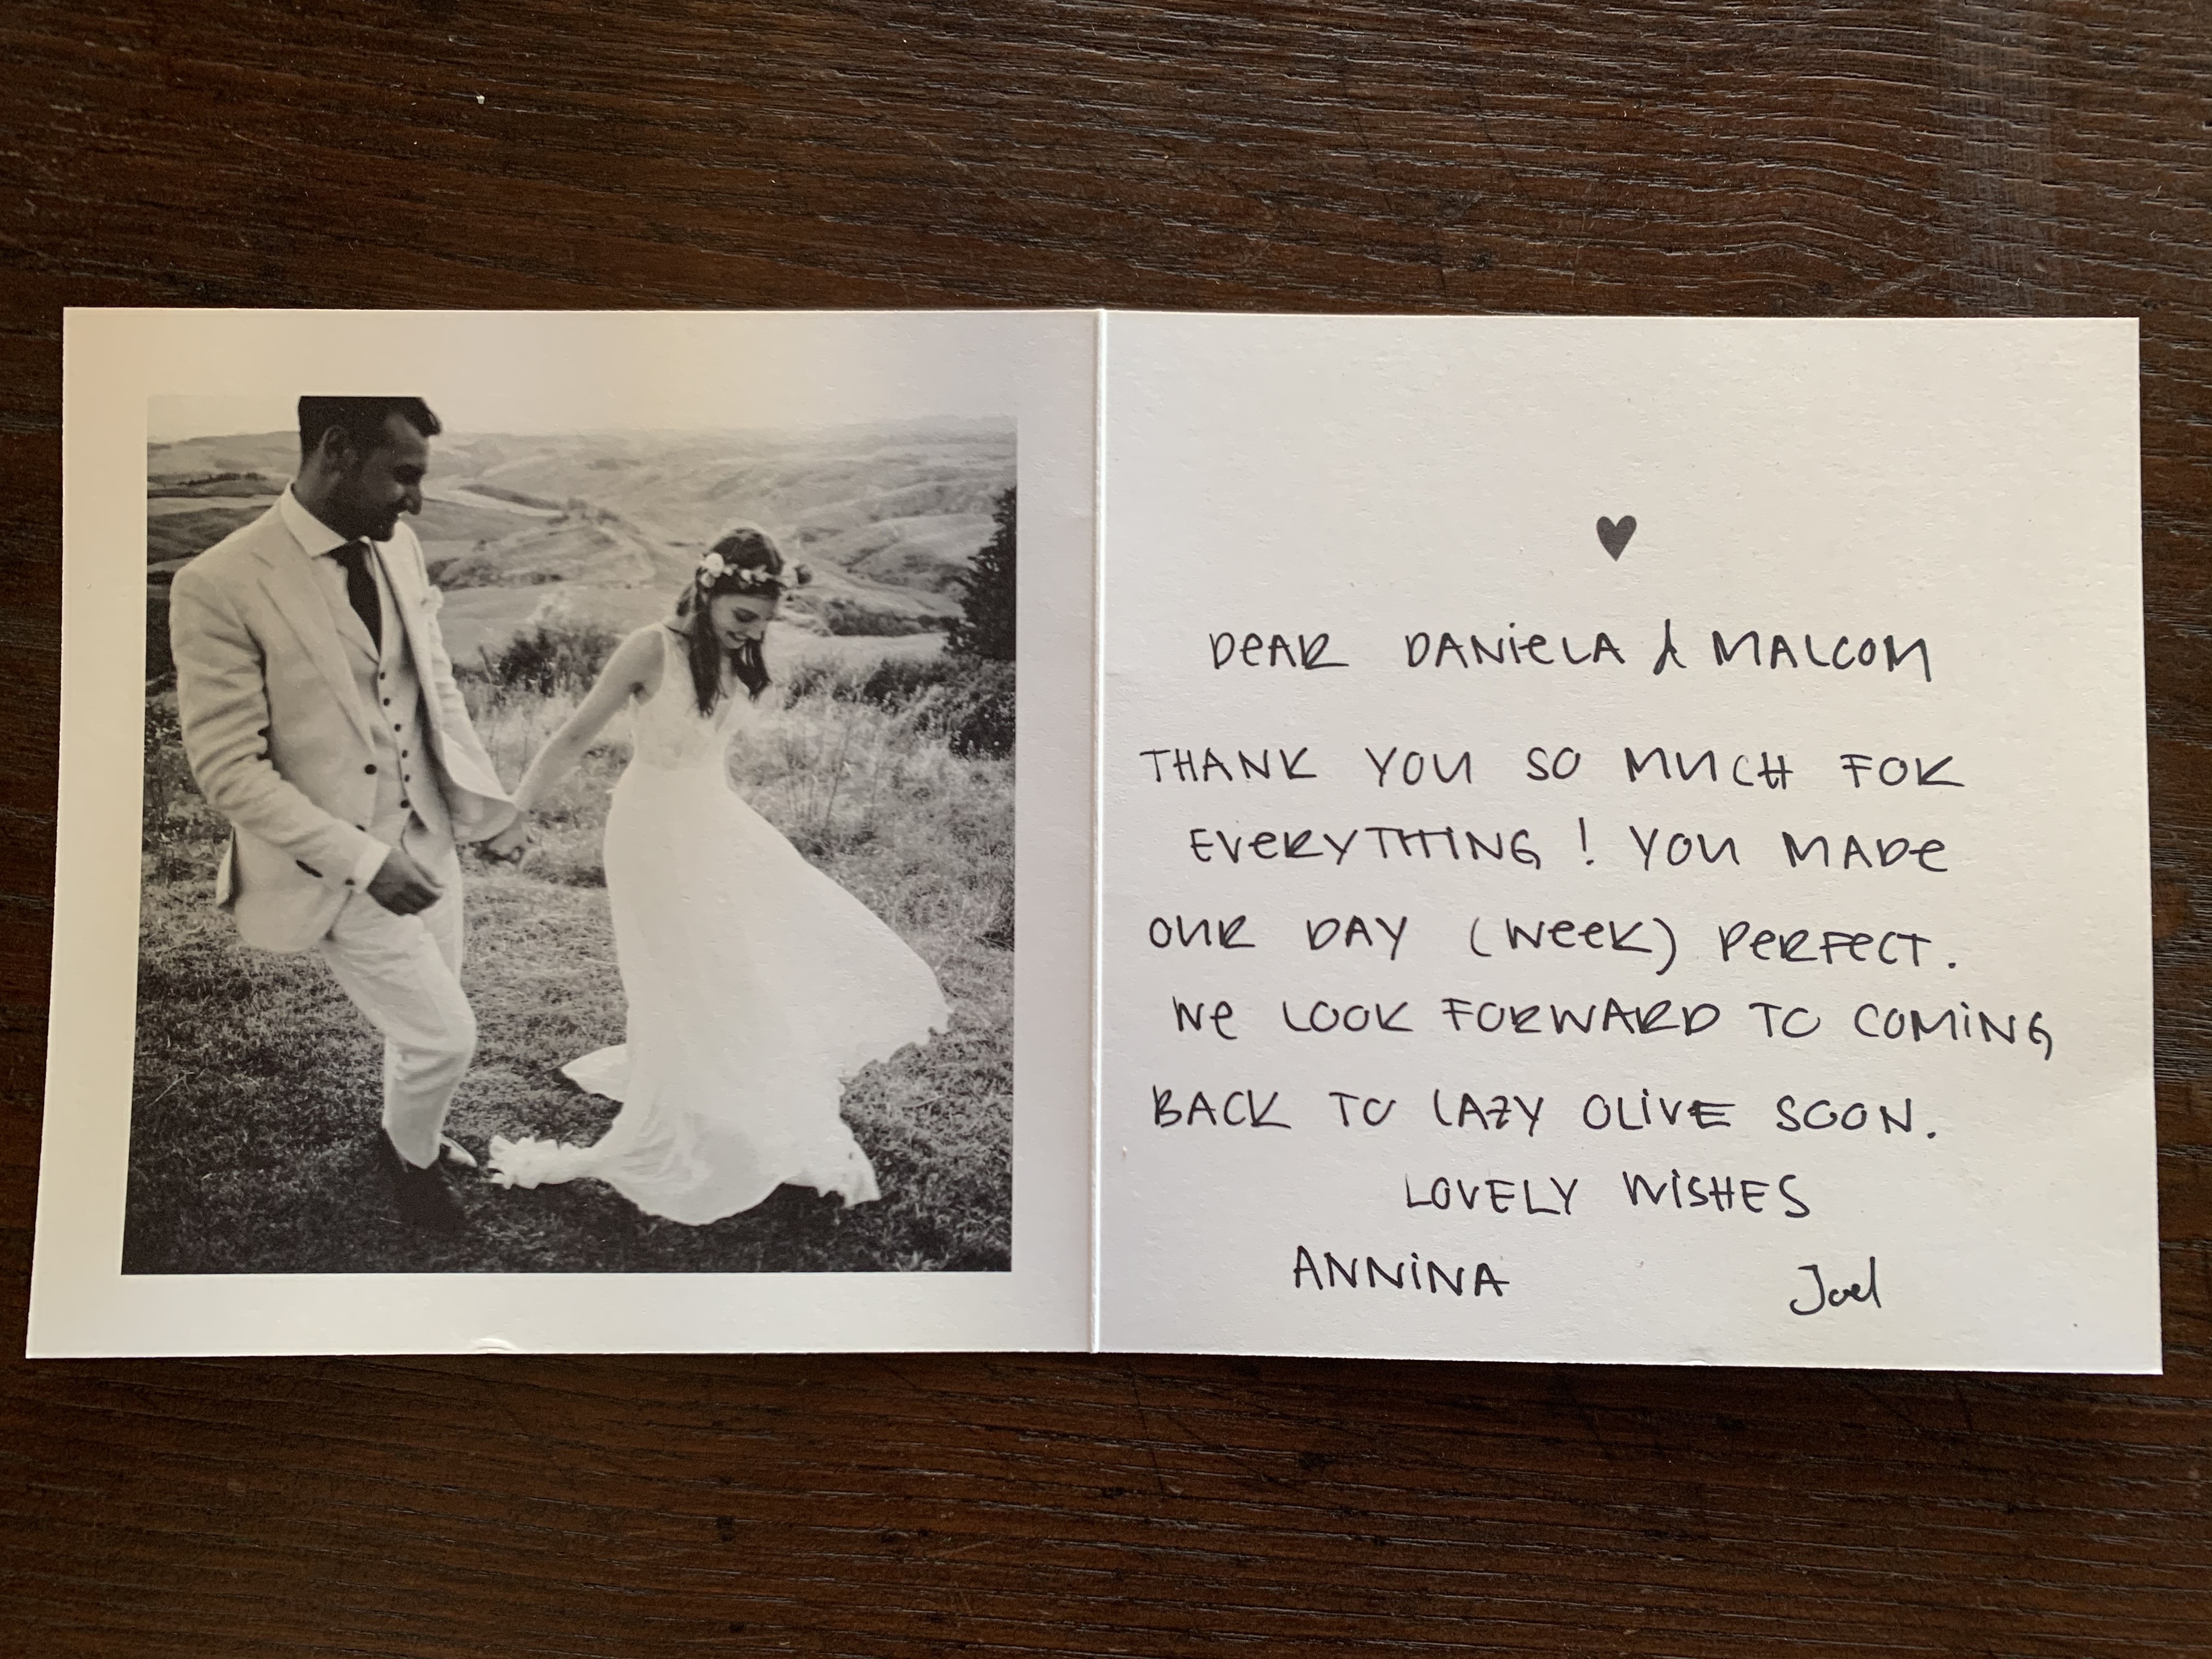 DEAR DANiELA & MALCOM
THANK YOU SO MUCH FOR
EVERYTHING! YOU MADE
OUR DAY (WEEK) PERFECT.
WE LOOK FORWARD TO COMiNG
BACK TO LAZY OLiVE SOON.
LOVELY WiSHES
ANNiNA Joel